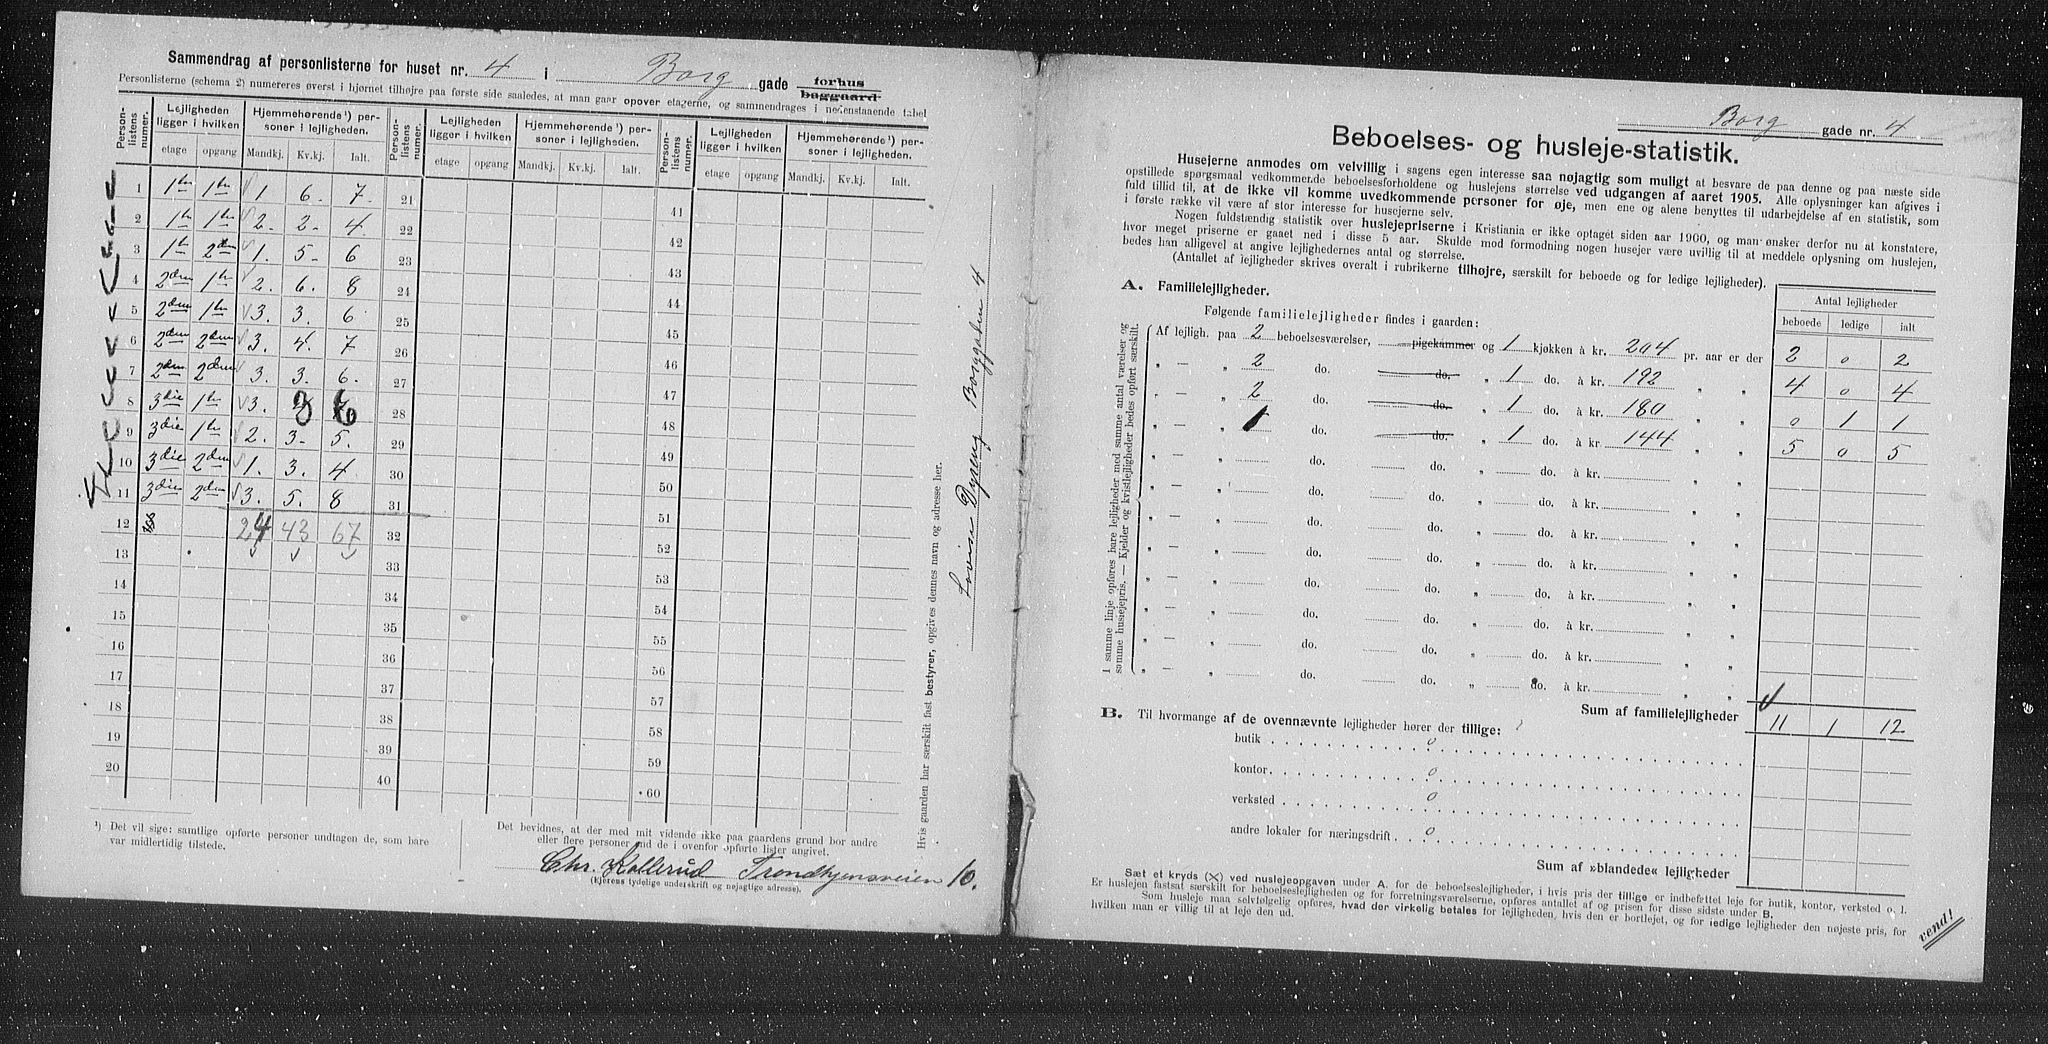 Sammendrag af personlisterne for huset nr. 4 i Borg gade forhus baggaard
Personlisterne (schema 2) numereres øverst i hjørnet tilhøjre paa første side saaledes, at man gaar opover etagerne, og sammendrages i nedenstaaende tabel
Person-listens numer. Lejligheden ligger i hvilken Hjemmehørende ¹) personer i lejligheden. Person-listens numer. Lejligheden ligger i hvilken Hjemmehørende ¹) personer i lejligheden. Person-listens numer. Lejligheden ligger i hvilken Hjemmehørende ¹) personer i lejligheden.
etage opgang Mandkj. Kv.kj. Ialt. etage opgang Mandkj. Kv.kj. Ialt. etage opgang Mandkj. Kv.kj. Ialt.
1 1ste 1ste 1 6. 7. 21 41
2 1ste 1ste 2. 2. 4. 22 42
3 1ste 2den 1. 5. 6 23 43
4 2den 1ste 2. 6. 8 24 44
5 2den 1ste 3. 3. 6. 25 45
6 2den 2den 3. 4. 7 26 46
7 2den 2den 3. 3. 6. 27 47
8 3die 1ste 3. 3 6 28 48
9 3die 1ste 2. 3. 5. 29 49
10 3die 2den 1. 3. 4 30 50
11 3die 2den 3. 5. 8 31 51
12 24 43 67 32 52
13 33 53
14 34 54
15 35 55
16 36 56
17 37 57
18 38 58
19 39 59
20 40 60
¹) Det vil sige: samtlige opførte personer undtagen de, som bare var midlertidig tilstede.
Det bevidnes, at der med mit vidende ikke paa gaardens grund bor andre
eller flere personer end de i ovenfor opførte lister angivet.
Chr. Kollerud Trondhjemsveien 10.
(Ejerens tydelige underskrift og nøjagtige adresse).
Hvis gaarden har særskilt fast bestyrer, opgives dennes navn og adresse her.
Borggaden 4
Borg gade nr. 4
Beboelses- og husleje-statistik.
Husejerne anmodes om velvillig i sagens egen interesse saa nøjagtig som muligt at besvare de paa denne og paa næste side
opstillede spørgsmaal vedkommende beboelsesforholdene og huslejens størrelse ved udgangen af aaret 1905. Alle oplysninger kan afgives i
fuld tillid til, at de ikke vil komme uvedkommende personer for øje, men ene og alene benyttes til udarbejdelse af en statistik, som
i første række vil være af stor interesse for husejerne selv.
Nogen fuldstændig statistik over huslejepriserne i Kristiania er ikke optaget siden aar 1900, og man ønsker derfor nu at konstatere,
hvor meget priserne er gaaet ned i disse 5 aar. Skulde mod formodning nogen husejer være uvillig til at meddele oplysning om huslejen,
bedes han alligevel at angive lejlighedernes antal og størrelse.
(Antallet af lejligheder skrives overalt i rubrikerne tilhøjre, særskilt for beboede og for ledige lejligheder).
A. Familielejligheder.
Følgende familielejligheder findes i gaarden:
Antal lejligheder
beboede ledige ialt
I samme linje opføres bare lejligheder med samme antal værelser og
samme huslejepris. — Kjelder og kvistlejligheder bedes opført særskilt.
Af lejligh. paa 2 beboelsesværelser, pigekammer og 1 kjøkken à kr. 204 pr. aar er der 2 0 2
„ — „ 2 do. do. „ 1 do. à kr. 192 „ „ 4 0 4
„ — „ 2 do. do. „ 1 do. à kr. 180 „ „ 0 1 1
„ — „ 1 do. do. „ 1 do. à kr. 144 „ „ 5 0 5
„ — „ do. do. „ do. à kr. „ „
„ — „ do. do. „ do. à kr. „ „
„ — „ do. do. „ do. à kr. „ „
„ — „ do. do. „ do. à kr. „ „
„ — „ do. do. „ do. à kr. „ „
„ — „ do. do. „ do. à kr. „ „
„ — „ do. do. „ do. à kr. „ „
„ — „ do. do. „ do. à kr. „ „
Sum af familielejligheder 11 1 12
B. Til hvormange af de ovennævnte lejligheder hører der tillige:
butik 0
kontor 0
verksted 0
andre lokaler for næringsdrift 0
Sum af »blandede« lejligheder
Sæt et kryds (X) ved huslejeopgaven under A. for de beboelseslejligheder, i hvis pris der tillige er indbefattet leje for butik, kontor, verksted o. l.
Er huslejen fastsat særskilt for beboelseslejligheden og for forretningsværelserne, opføres antallet af og prisen for disse sidste under B.
Som husleje maa selvfølgelig opføres, hvad der virkelig betales for lejligheden, hvis den er bortlejet, og for ledige lejligheder den nøjeste pris, for
hvilken man er villig til at leje den ud.
vend!